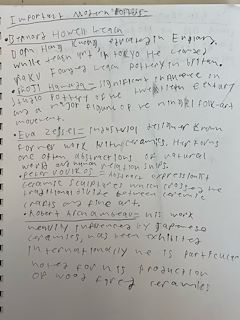 Important Modern Potters
• Bernard Howell Leach
Born Hong Kong
while teaching in Tokyo he learned
raku Founded Leach Pottery in
• Shoji Hamada = significant influence in
studio pottery of the twentieth century
and a major figure of the mingei folk-art
movement.
• Eva Zeisel = industrial designer known
for her work with ceramics. Her forms
are often abstractions of the natural
world and human relationships.
• Peter Voulkos = Abstract expressionist
ceramic sculptures which crossed the
traditional divide between ceramic
crafts and fine art.
• Robert Archambeau = his work
heavily influenced by Japanese
ceramics, has been exhibited
internationally he is particular
noted for his production
of wood fired ceramics